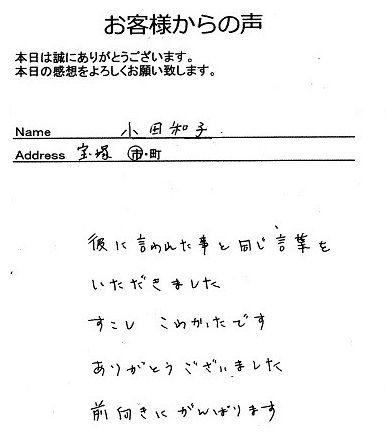 お客様からの声
本日は誠にありがとうございます。
本日の感想をよろしくお願い致します。
Name 小田和子
Address 宝塚 市・町
彼に言われた事と同じ言葉を
いただきました
すこし こわかったです
ありがとうございました
前向きにがんばります